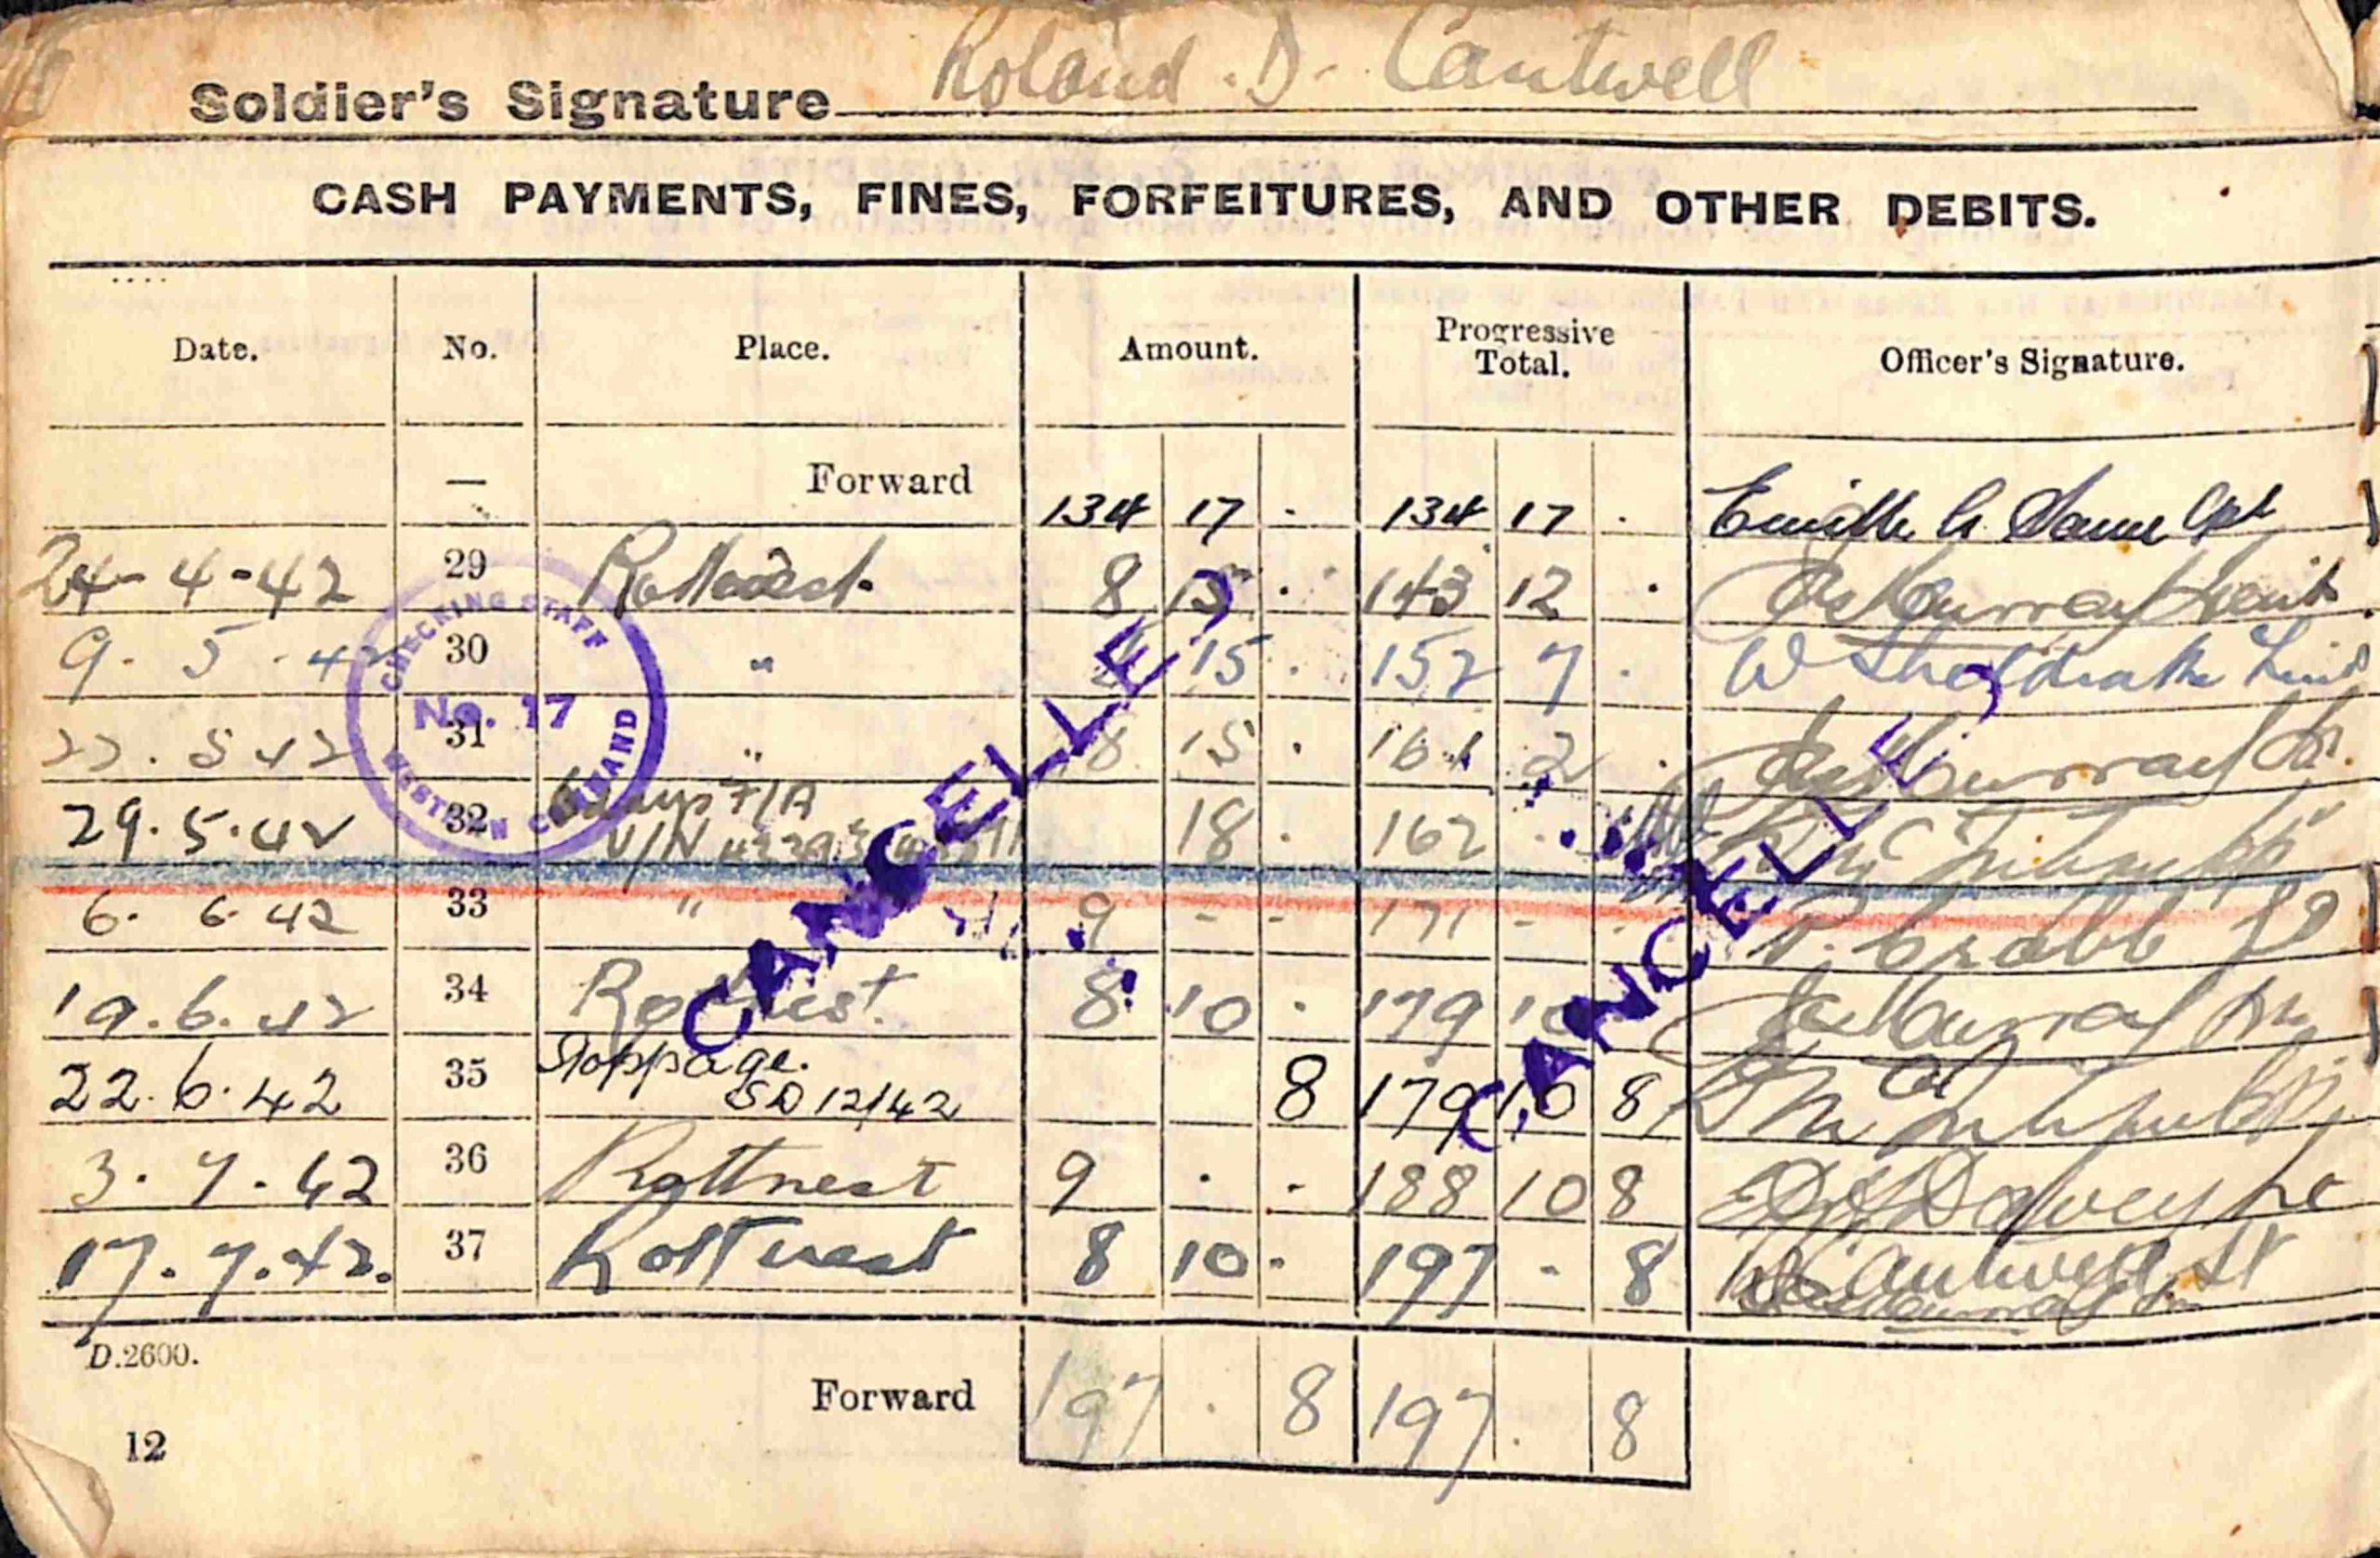 Soldier's Signature Roland . D. Cantwell
CASH PAYMENTS, FINES, FORFEITURES, AND OTHER DEBITS.
Date. No. Place. Amount. Progressive Total. Officer's Signature.
— Forward 134 17 - 134 17 .
24-4-42 29 Rottnest 8 15 . 143 12 .
9. 5. 42 30 " 15 . 152 7 . W Sheldrake Lieut
22.5.42 31 " 8 15 . 161 2 .
29.5.42 32 F/A V/N 18 . 162
6. 6. 42 33 " 9 - - 171 - -
19.6.42 34 Rottnest. 8 10 . 179 10
22.6.42 35 Stoppage. SD 12/42 8 179 10 8
3.7.42 36 Rottnest 9 . . 188 10 8
17.7.42. 37 Rottnest 8 10 . 197 - 8 Cantwell
CHECKING STAFF
No. 17
WESTERN COMMAND
CANCELLED
CANCELLED
D.2600.
Forward 197 . 8 197 . 8
12